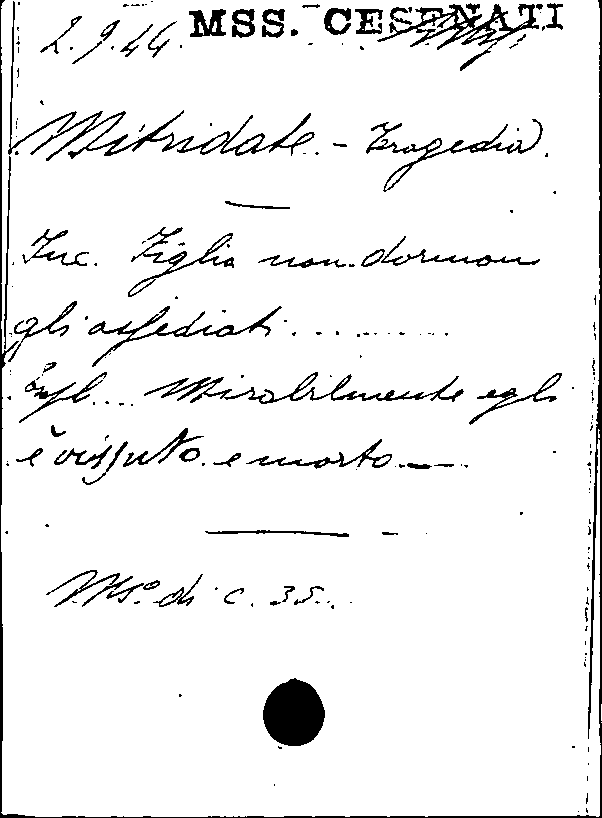 MSS. CESENATI
2.9.44.
Mitridate. - Tragedia.
Inc. Figlia non dormon
gli assediati..........
Expl... Mirabilmente egli
è vissuto e morto.—
Ms.º di c. 35..